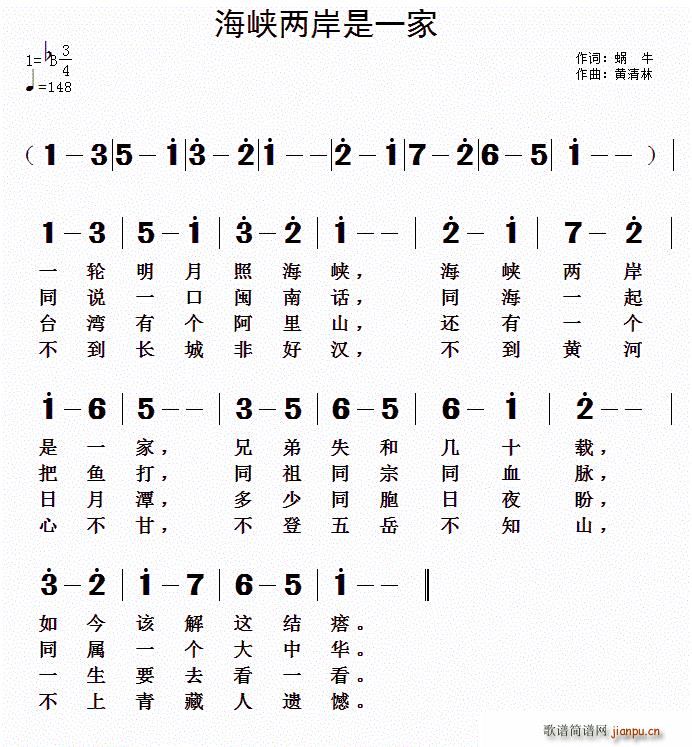 海峡两岸是一家
1=♭B 3/4
♩=148
作词：蜗 牛
作曲：黄清林
（1－3|5－1̇|3̇－2̇|1̇－－|2̇－1̇|7－2̇|6－5|1̇－－）|
1－3|5－1̇|3̇－2̇|1̇－－|2̇－1̇|7－2̇|
一轮明月照海峡，海峡两岸
同说一口闽南话，同海一起
台湾有个阿里山，还有一个
不到长城非好汉，不到黄河
1̇－6|5－－|3－5|6－5|6－1̇|2̇－－|
是一家，兄弟失和几十载，
把鱼打，同祖同宗同血脉，
日月潭，多少同胞日夜盼，
心不甘，不登五岳不知山，
3̇－2̇|1̇－7|6－5|1̇－－‖
如今该解这结瘩。
同属一个大中华。
一生要去看一看。
不上青藏人遗憾。
歌谱简谱网 jianpu.cn